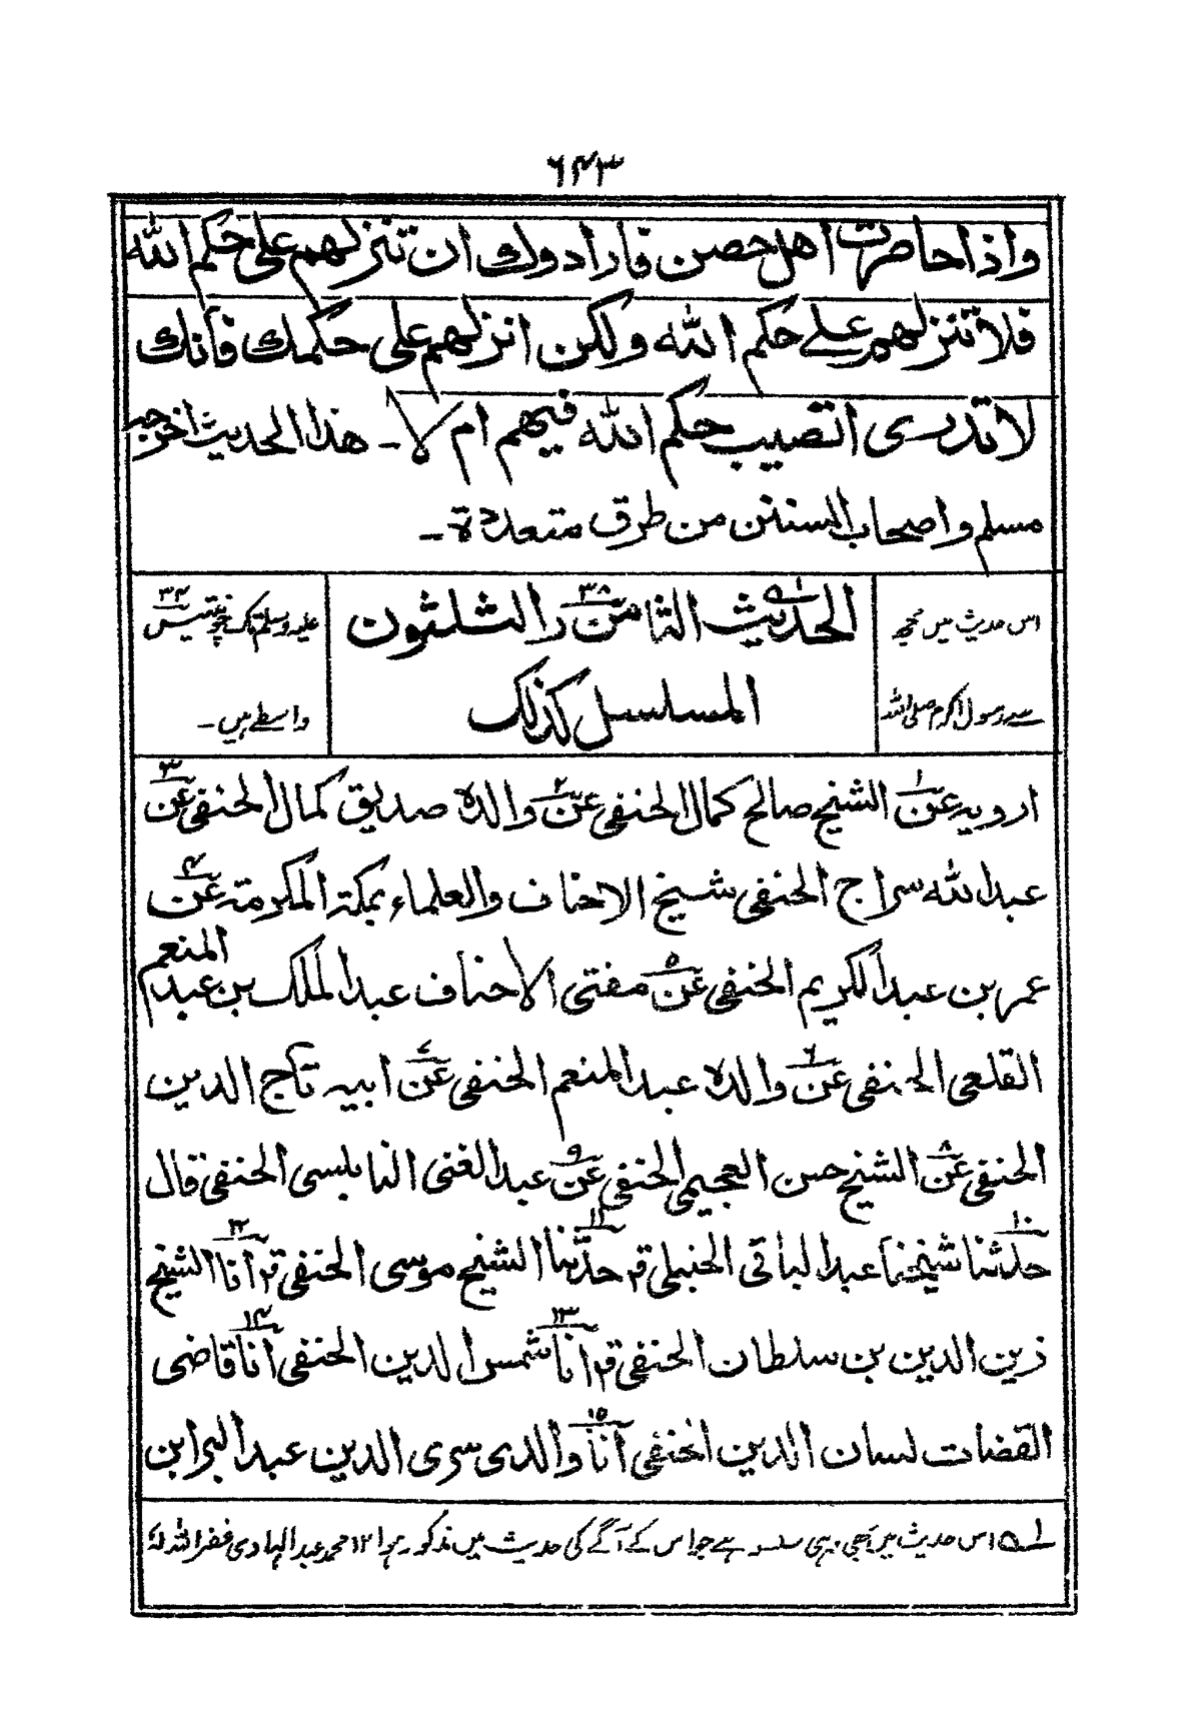 ٦٤٣
واذا حاصرت اهل حصن فارادوك ان تنزلهم على حكم الله
فلا تنزلهم علے حكم الله ولكن انزلهم على حكمك فأنك
لا تدرى اتصيب حكم الله فيهم ام لا۔ هذا الحديث اخرجه
مسلم واصحاب السنن من طرق متعددة۔
اس حدیث میں مجھ
سے رسول اکرم صلی اللہ
الحديث الثامن والثلثون ٣٨
المسلسل كذلك
علیہ وسلم تک چونتیس ٣٤
واسطے ہیں۔
ارويه عن ١ الشيخ صالح كمال الحنفى عن ٢ والده صديق كمال الحنفى عن ٣
عبد الله سراج الحنفى شيخ الاحناف والعلماء بمكة المكرمة عن ٤
عمر بن عبد الكريم الحنفى عن ٥ مفتى الاحناف عبد الملك بن عبد المنعم
القلعى الحنفى عن ٦ والده عبد المنعم الحنفى عن ٧ ابيه تاج الدين
الحنفى عن ٨ الشيخ حسن العجيمى الحنفى عن ٩ عبد الغنى النابلسى الحنفى قال
حدثنا ١٠ شيخنا عبد الباقى الحنبلى قر حدثنا ١١ الشيخ موسى الحنفى قر انا ١٢ الشيخ
زين الدين بن سلطان الحنفى قر انا ١٣ شمس الدين الحنفى انا ١٤ قاضى
القضات لسان الدين الحنفى انا ١٥ والدى سرى الدين عبد البر ابن
لے اس حدیث میں بھی وہی سلسلہ ہے جو اس کے آگے کی حدیث میں مذکور ہوا ١٢ محمد عبد الہادی غفر اللہ لہ